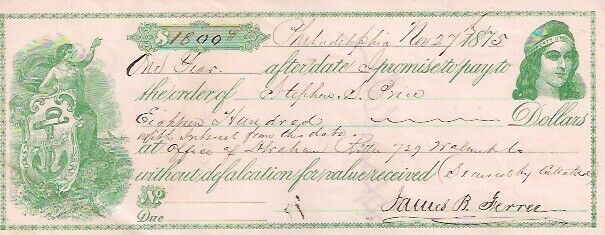 $1800
Philadelphia Nov 27 1875
One Year after date I promise to pay to
the order of Stephen S. Price
Eighteen Hundred Dollars
with Interest from this date.
at Office of Abraham 729 Walnut
without defalcation for value received (Secured by
No
Due James B. Ferree